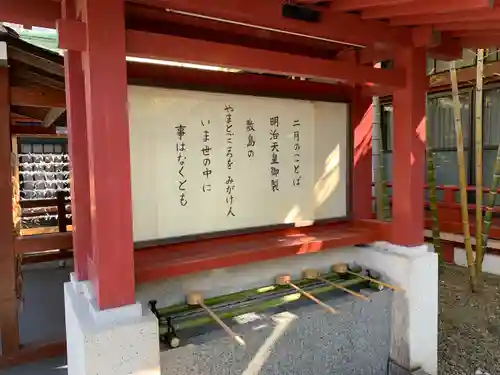 二月のことば
明治天皇御製
敷島の
やまとごころをみがけ人
いま世の中に
事はなくとも